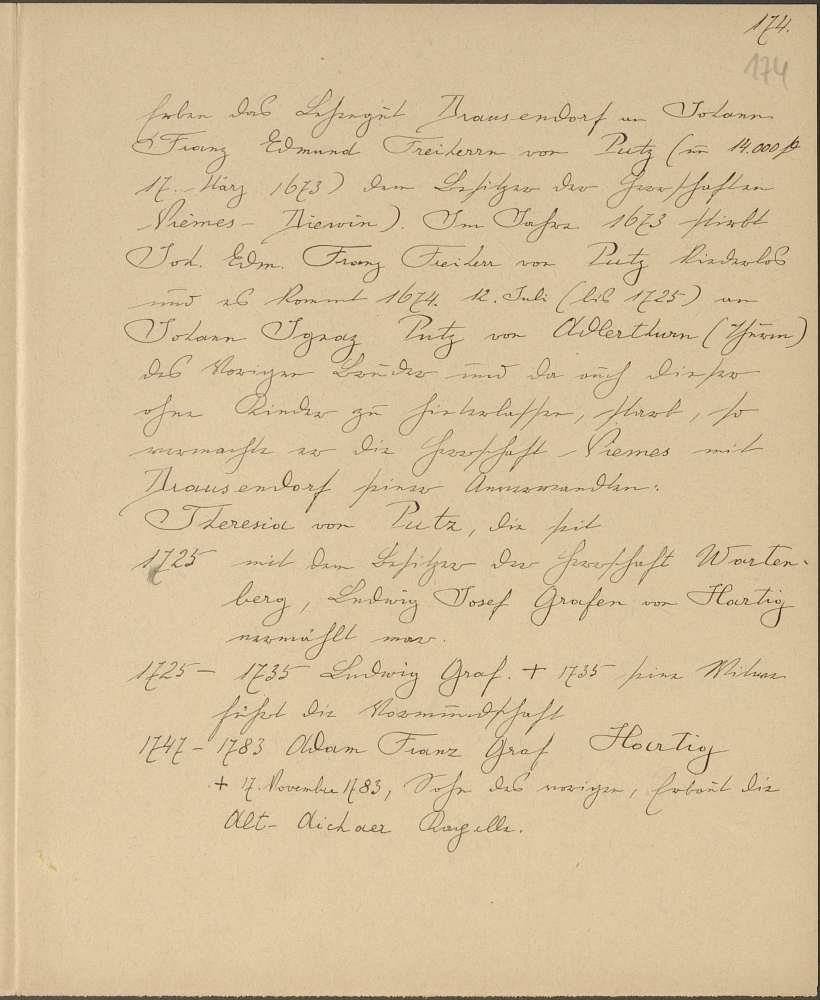 174.
174
Erben das Lehengut Drausendorf an Johann
Franz Edmund Freiherrn von Putz (um 14.000 fl
17. März 1673) dem Besitzer der Herrschaften
Niemes - Diewin). Im Jahre 1673 stirbt
Joh. Edm. Franz Freiherr von Putz kinderlos
und es kommt 1674. 12. Juli (bis 1725) an
Johann Ignaz Putz von Adlerthurn (Thurn)
des Vorigen Bruder und da auch dieser
ohne Kinder zu hinterlassen, starb, so
vermachte er die Herrschaft Niemes mit
Drausendorf seiner Anverwandten:
Theresia von Putz, die seit
1725 mit dem Besitzer der Herrschaft Warten-
berg, Ludwig Josef Grafen von Hartig
vermählt war.
1725 - 1735 Ludwig Graf. + 1735 seine Witwe
führt die Vormundschaft
1747 - 1783 Adam Franz Graf Hartig
+ 17. November 1783, Sohn des vorigen, Erbaut die
Alt- Aichaer Kapelle.